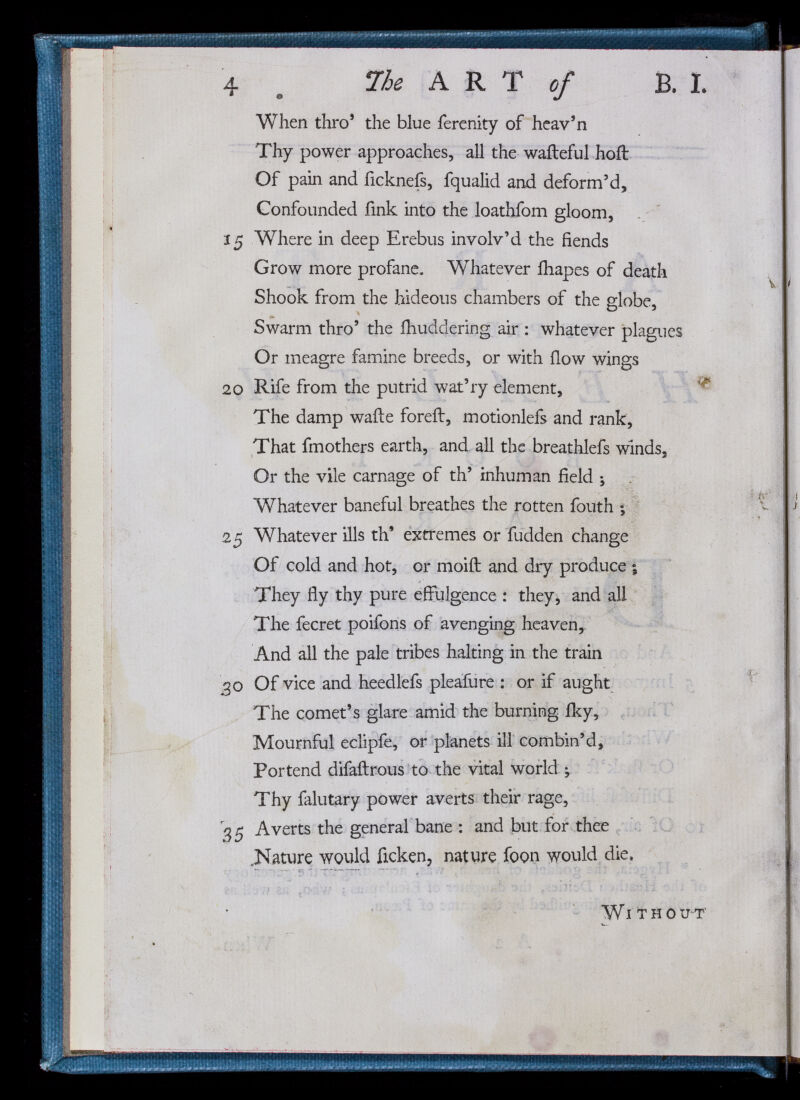 4 The ART of B. I.
When thro’ the blue ſerenity of heav’n
Thy power approaches, all the waſteful hoſt
Of pain and ſickneſs, ſqualid and deform’d,
Confounded ſink into the loathſom gloom,
15 Where in deep Erebus involv’d the fiends
Grow more profane. Whatever ſhapes of death
Shook from the hideous chambers of the globe,
Swarm thro’ the ſhuddering air : whatever plagues
Or meagre famine breeds, or with ſlow wings
20 Riſe from the putrid wat’ry element,
The damp waſte foreſt, motionleſs and rank,
That ſmothers earth, and all the breathleſs winds,
Or the vile carnage of th’ inhuman field ;
Whatever baneful breathes the rotten ſouth ;
25 Whatever ills th’ extremes or ſudden change
Of cold and hot, or moiſt and dry produce ;
They fly thy pure effulgence : they, and all
The ſecret poiſons of avenging heaven,
And all the pale tribes halting in the train
30 Of vice and heedleſs pleaſure : or if aught
The comet’s glare amid the burning ſky,
Mournful eclipſe, or planets ill combin’d,
Portend diſaſtrous to the vital world ;
Thy ſalutary power averts their rage,
35 Averts the general bane : and but for thee
Nature would ſicken, nature ſoon would die.
WITHOUT